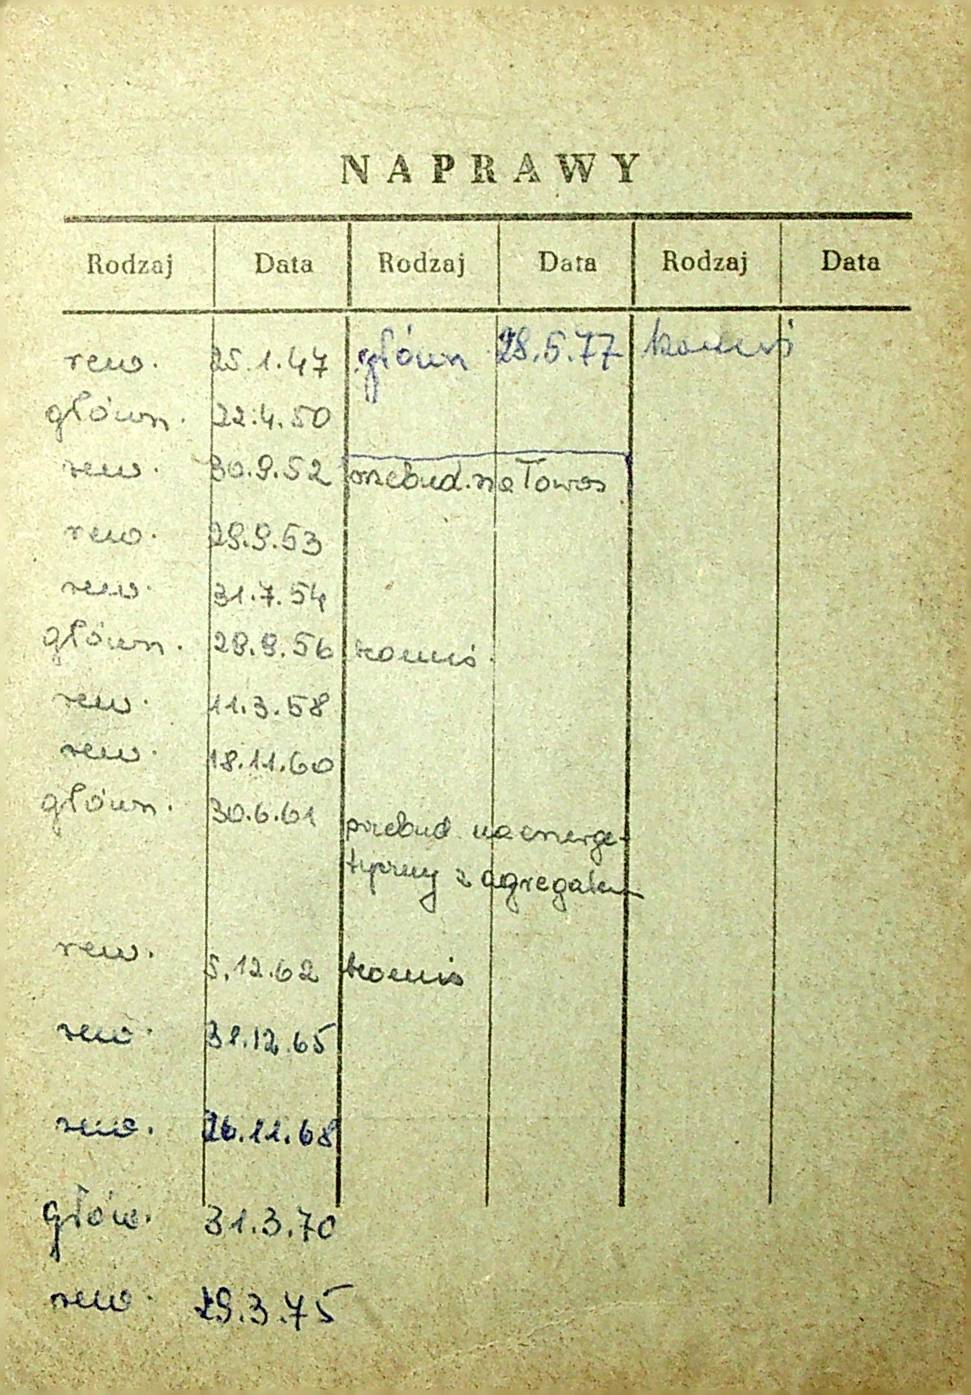 NAPRAWY
Rodzaj Data Rodzaj Data Rodzaj Data
rew. 25.1.47 główn 28.5.77
główn. 22.4.50
rew. 30.9.52 przebud. na Towos
rew. 29.9.53
rew. 31.7.54
główn. 29.9.56
rew. 11.3.58
rew. 18.11.60
główn. 30.6.61
przebud na energe-
tyczny z agregatem
rew. 5.12.62
rew. 31.12.65
rew. 26.11.68
głów. 31.3.70
rew. 29.3.75